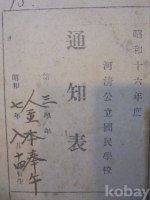 昭和十六年度
河清公立國民學校
通知表
第三學年
金本
昭和 七年 八月 十四日生
kobay